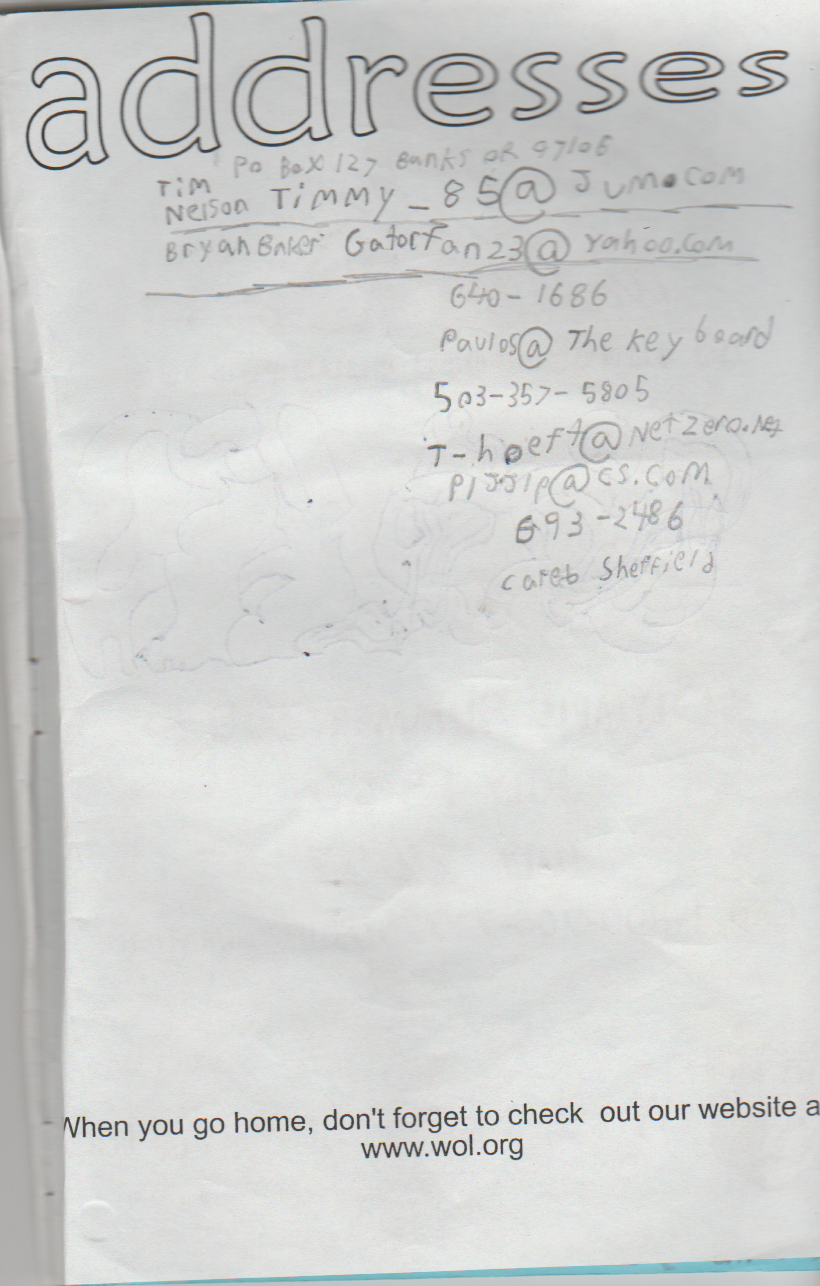 addresses
PO BOX 127 Banks OR 97106
Tim
Nelson Timmy_85@Juno.com
Bryan Baker Gatorfan23@Yahoo.com
640-1686
Paulos@The Keyboard
503-357-5805
T-hoeft@NetZero.Net
@CS.COM
693-2486
Careb Sheffield
When you go home, don't forget to check out our website a
www.wol.org